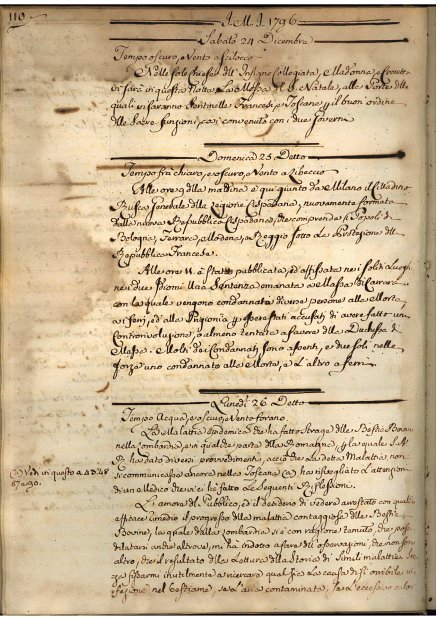 110
J.M.J. 1796
Sabato 24 Dicembre
Tempo oscuro, e Vento a scilocco
Nelle sole Chiese dell' Insigne Collegiata, Madonna, e
si farà in questa Notte La Messa di S. Natale, alle Porte delle
quali vi saranno Sentinelle Francesi, e Toscane p il buon ordine
delle Sacre funzioni, così convenuto con i due Governi
Domenica 25 Detto
Tempo fra chiaro, e oscuro, e Vento a Libeccio
Alle ore 9 della mattina è qui giunto da Milano il Cittadino
Rusca Generale della Legione Cispadana, nuovamente formata
dalla nuova Repubblica Cispadana, che comprende i Popoli di
Bologna, Ferrara, Modena, e Reggio sotto La Protezione della
Repubblica Francese.
Alle ore 11 è stata pubblicata, ed affissata nei soliti Luoghi
nei due Idiomi Una Sentenza emanata a Massa di Carrara
con la quale vengono condannate diverse persone alla Morte,
ai ferri, ed alla Prigionia p essere stati accusati di avere fatto un
Controrivoluzione, o almeno tentata a favore della Duchessa di
Massa. Molti dei Condannati sono assenti, e due soli nella
forza uno condannato alla Morte, e L'altro ai ferri
Lunedì 26 Detto
Tempo Acqua, e oscuro, e Vento forano.
La malattia Endemica che ha fatto strage delle Bestie Bovine
nella Lombardia, e in qualche parte della Romagna, p la quale S.A.R.
ha dato diversi provvedimenti, acciò che La detta Malattia non
comunicasse ancora nella Toscana (a) ha risvegliato L'attenzione
di un Medico che vi ci ha fatto Le seguenti Riflessioni.
(a) Vedi in questo a 43. 48
87 e 90.
L'amore del Pubblico, ed il desiderio di vedere arrestato con qualche
efficace rimedio il progresso della malattia contagiosa delle Bestie
Bovine, la quale dalla Lombardia si è con ragione temuto, che possa
dilatarsi anche altrove, mi ha indotto a fare dell' osservazioni, che non sono
altro, che il resultato della Lettura della Storia di Simili malattie. Sen-
za sperarmi inutilmente a ricercare qual sia La causa di sì orribile in-
fezione nel bestiame, se L'aria contaminata, se L'eccessivo calo-